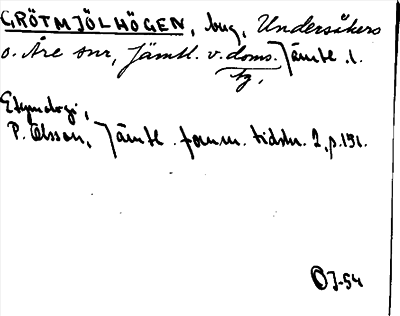 GRÖTMJÖLHÖGEN, bug, Undersåkers
o. Åre snr, Jämtl. v. doms. Jämtl. l.
tg,
Etymologi,
P. Olsson, Jämtl. fornm. tidskr. 2, p. 131.
OJ-54